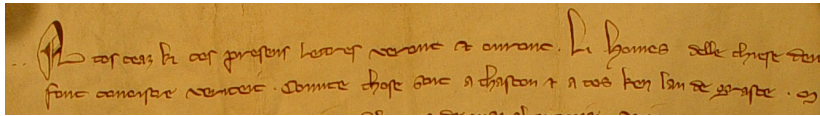 A tos ceaz ki ces presens letres veront et oiront. Li homes delle chiese den
font conoistre veriteit. Connute chose soit a chascon et a tos ken lan de grasce. M